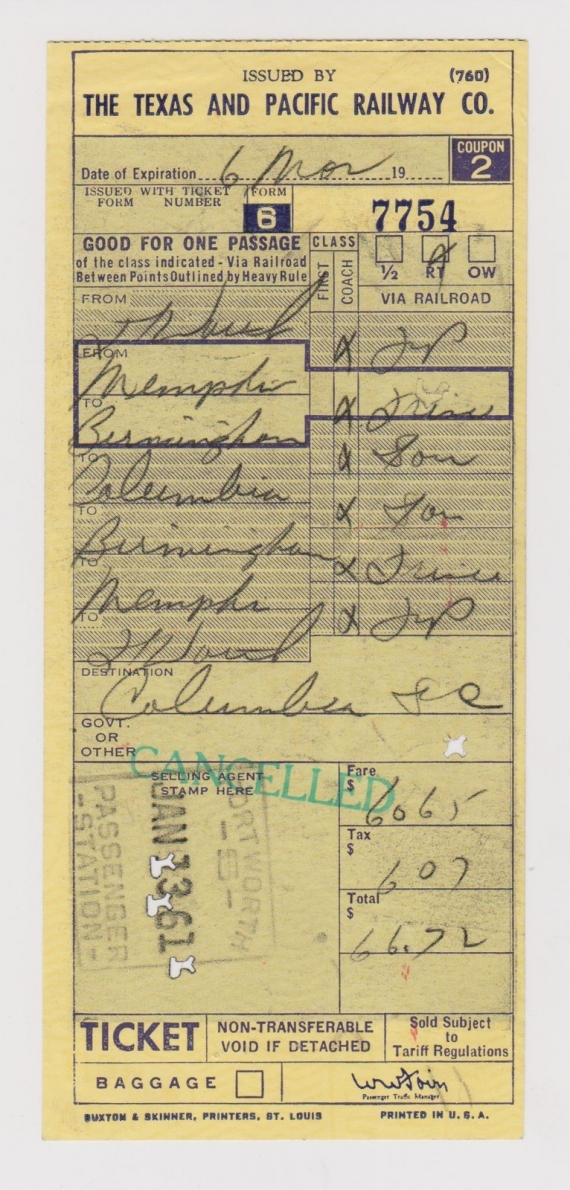 ISSUED BY (760)
THE TEXAS AND PACIFIC RAILWAY CO.
Date of Expiration 6 Mor 19 COUPON 2
ISSUED WITH TICKET
FORM NUMBER
FORM 6
7754
GOOD FOR ONE PASSAGE
of the class indicated - Via Railroad
Between Points Outlined by Heavy Rule
CLASS
FIRST COACH
½ RT OW
VIA RAILROAD
FROM
Ft Worth X TP
FROM
Memphis X Frisco
TO
Birmingham X Sou
TO
Columbia X Sou
TO
Birmingham X Frisco
TO
Memphis X TP
TO
Ft Worth
DESTINATION
Columbia SC
GOVT.
OR
OTHER
CANCELLED
SELLING AGENT
STAMP HERE
FORT WORTH
-5-
JAN 13 61
PASSENGER
-STATION-
Fare
$ 60 65
Tax
$ 6 07
Total
$ 66.72
TICKET
NON-TRANSFERABLE
VOID IF DETACHED
Sold Subject
to
Tariff Regulations
BAGGAGE
Passenger Traffic Manager
BUXTON & SKINNER, PRINTERS, ST. LOUIS PRINTED IN U. S. A.